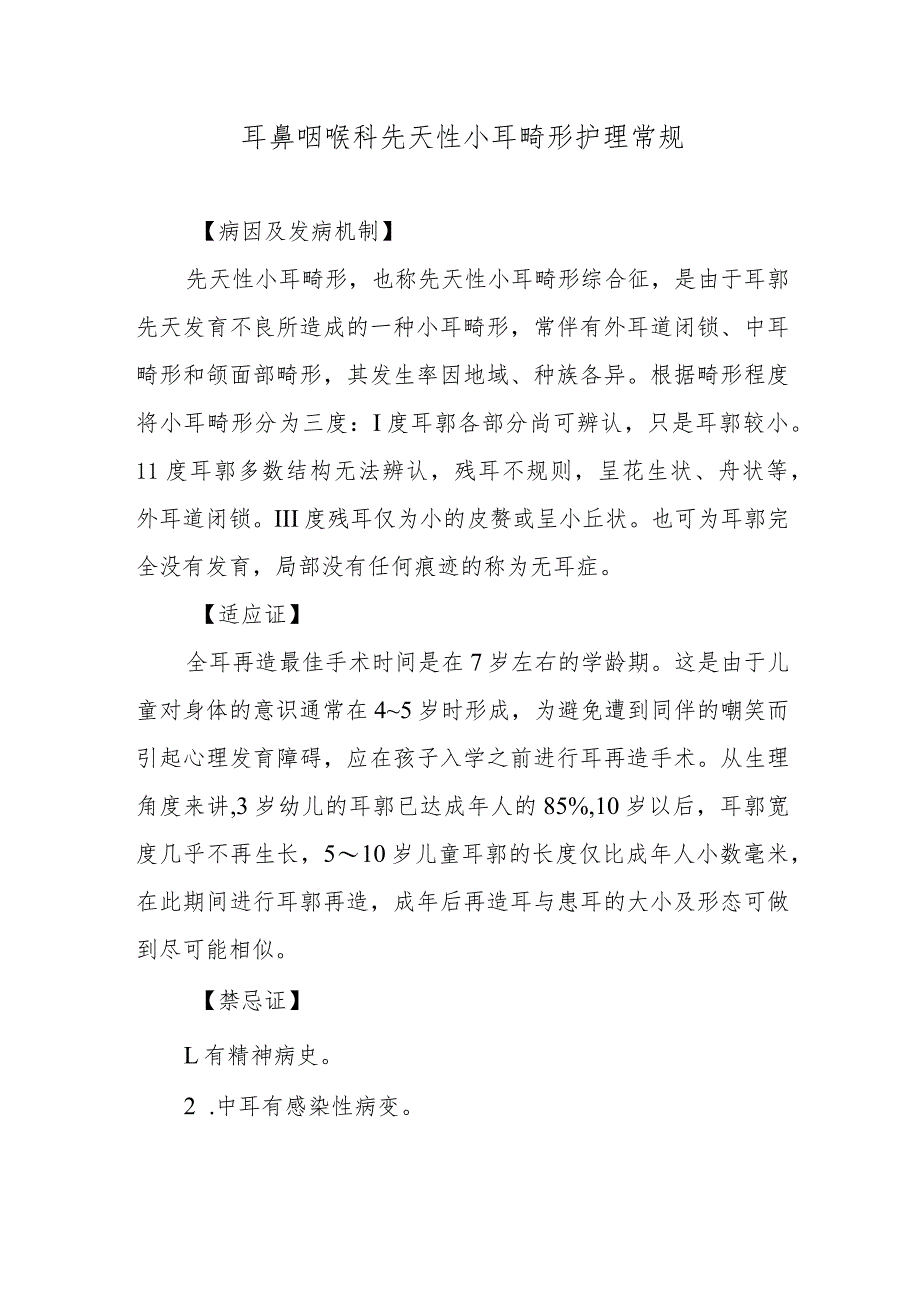 耳鼻咽喉科先天性小耳畸形护理常规
【病因及发病机制】
先天性小耳畸形，也称先天性小耳畸形综合征，是由于耳郭
先天发育不良所造成的一种小耳畸形，常伴有外耳道闭锁、中耳
畸形和颌面部畸形，其发生率因地域、种族各异。根据畸形程度
将小耳畸形分为三度：I 度耳郭各部分尚可辨认，只是耳郭较小。
11 度耳郭多数结构无法辨认，残耳不规则，呈花生状、舟状等，
外耳道闭锁。III 度残耳仅为小的皮赘或呈小丘状。也可为耳郭完
全没有发育，局部没有任何痕迹的称为无耳症。
【适应证】
全耳再造最佳手术时间是在 7 岁左右的学龄期。这是由于儿
童对身体的意识通常在 4~5 岁时形成，为避免遭到同伴的嘲笑而
引起心理发育障碍，应在孩子入学之前进行耳再造手术。从生理
角度来讲,3 岁幼儿的耳郭已达成年人的 85%,10 岁以后，耳郭宽
度几乎不再生长，5～10 岁儿童耳郭的长度仅比成年人小数毫米，
在此期间进行耳郭再造，成年后再造耳与患耳的大小及形态可做
到尽可能相似。
【禁忌证】
L 有精神病史。
2 .中耳有感染性病变。